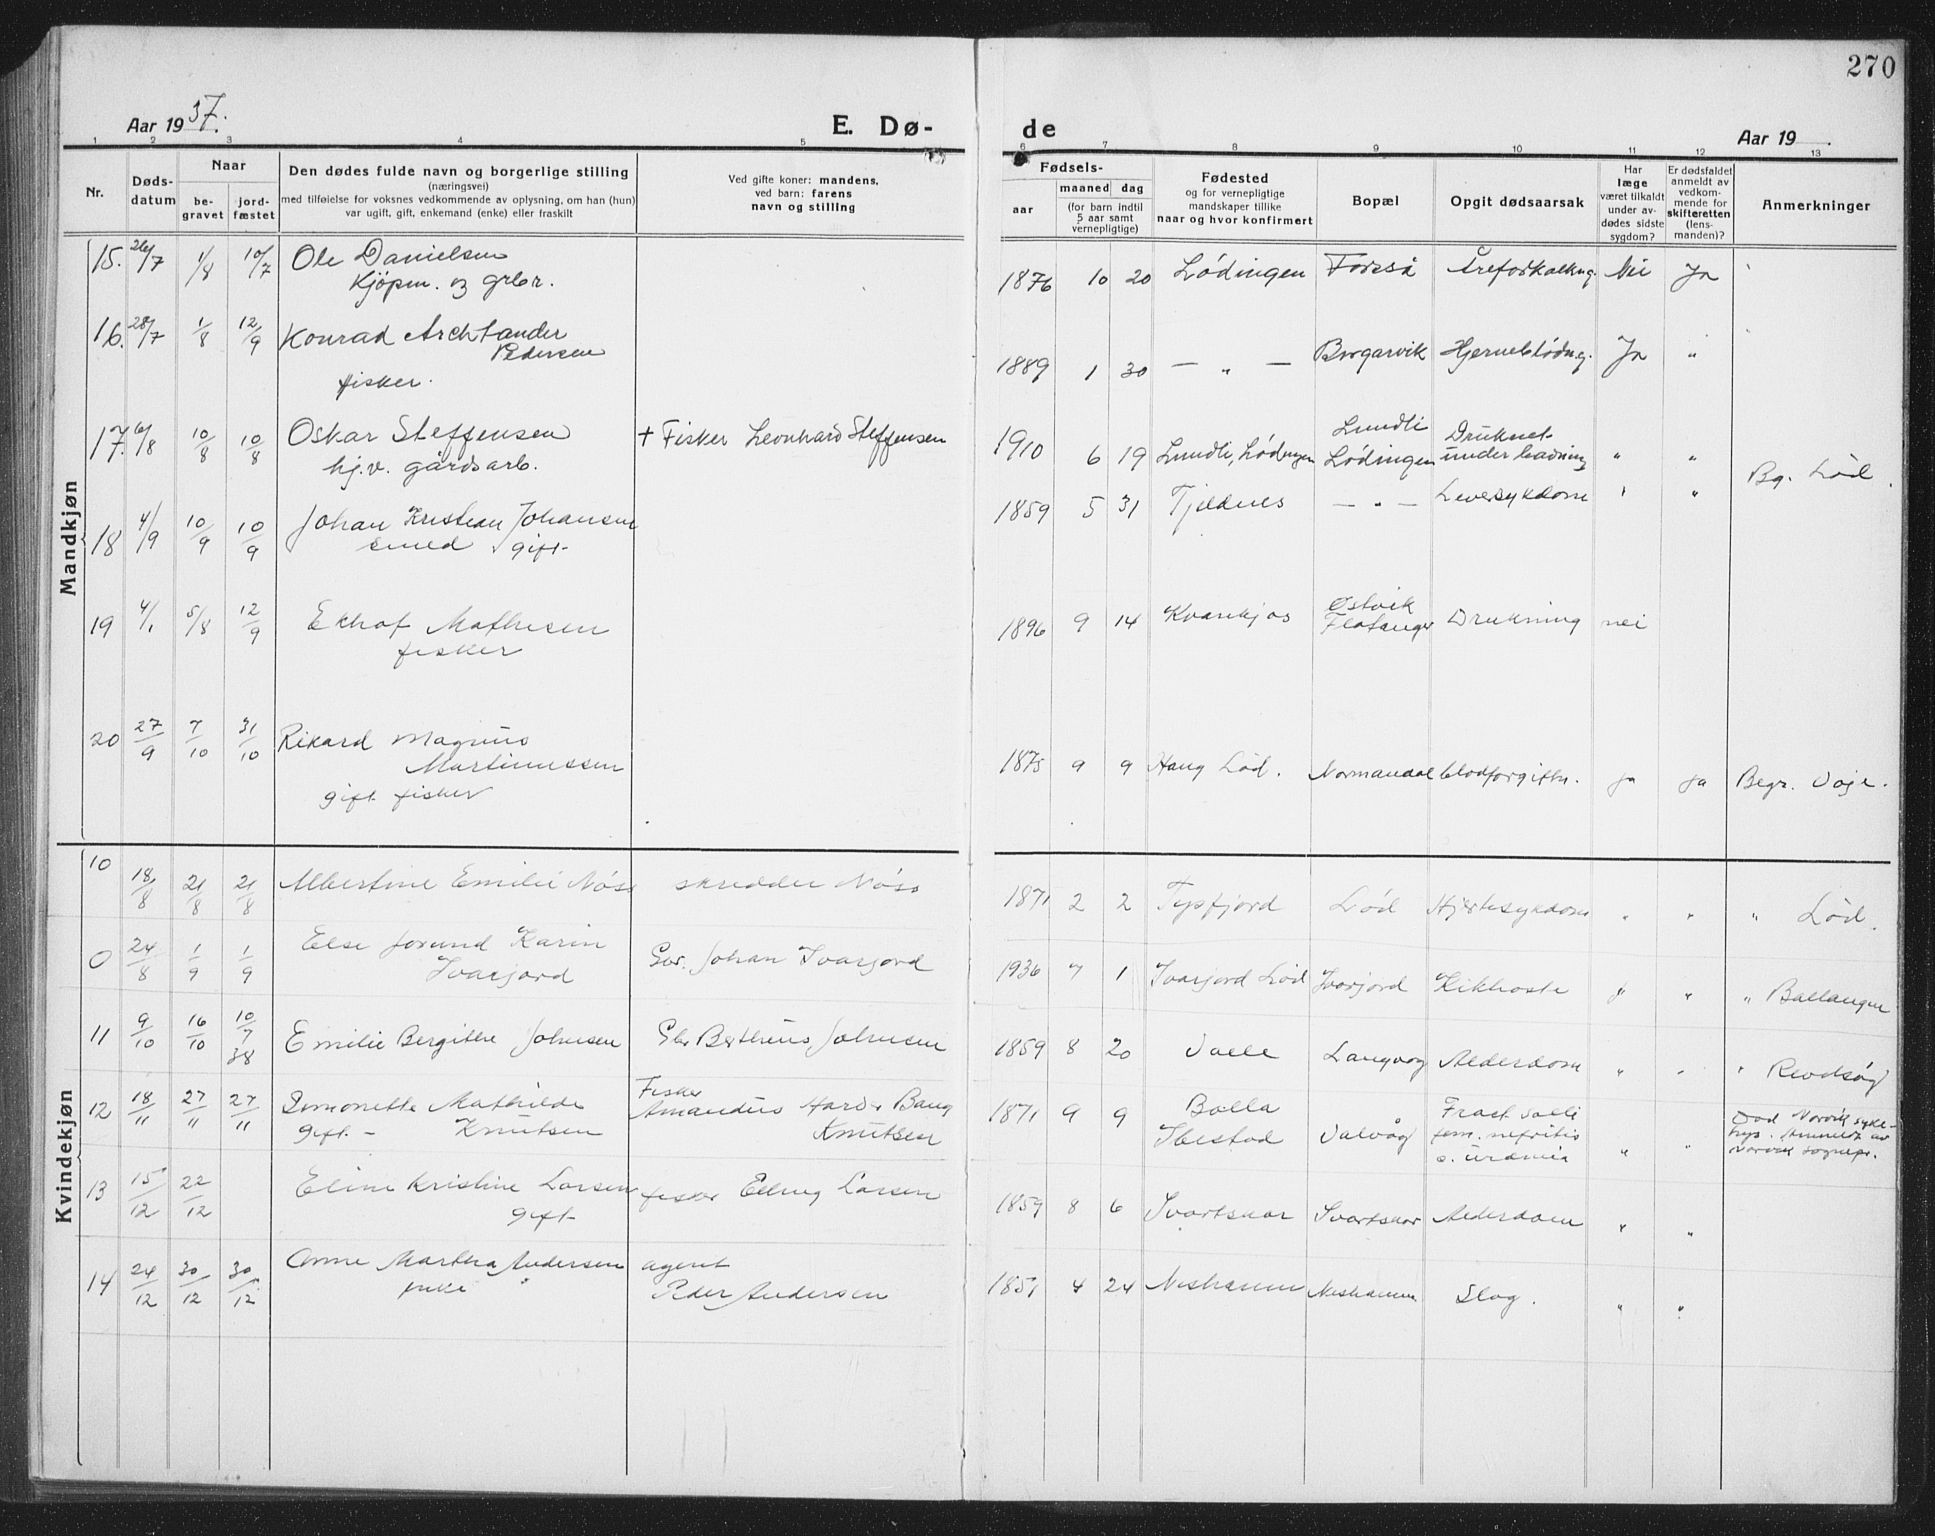 270
Aar 1937.
E. Dø-
de
Aar 19
1 2 3 4 5 6 7 8 9 10 11 12 13
Nr.
Døds-
datum
Naar
be-
gravet
jord-
fæstet
Den dødes fulde navn og borgerlige stilling
(næringsvei)
med tilføielse for voksnes vedkommende av oplysning, om han (hun)
var ugift, gift, enkemand (enke) eller fraskilt
Ved gifte koner: mandens,
ved barn: farens
navn og stilling
Fødsels-
aar
maaned dag
(for barn indtil
5 aar samt
vernepligtige)
Fødested
og for vernepligtige
mandskaper tillike
naar og hvor konfirmert
Bopæl
Opgit dødsaarsak
Har
læge
været tilkaldt
under av-
dødes sidste
sygdom?
Er dødsfaldet
anmeldt av
vedkom-
mende for
skifteretten
(lens-
manden)?
Anmerkninger
Mandkjøn
15. 26/7 1/8 10/7 Ole Danielsen 1876 10 20 Lødingen Forså Åreforkalkng Nei Ja
Kjöpm. og grbr.
16. 28/7 1/8 12/9 Konrad Archtander 1889 1 30 — " — Borgarvik Hjerneblödng. Ja "
Pedersen
fisker.
17. 6/8 10/8 10/8 Oskar Steffensen + Fisker Leonhard Steffensen 1910 6 19 Lundli, Lødingen Lundli Druknet
hj.v. gårdsarb. Lødingen under badning " " Bg. Lød.
18 4/9 10/9 10/9 Johan Kristian Johansen 1859 5 31 Tjeldnes — " — Leversykdom " "
smed gift
19 4/1 5/8 12/9 Ekhof Mathisen 1896 9 14 Kvankjos Østvik Drukning nei
fisker Flatanger
20 27/9 7/10 31/10 Rikard Magnus 1875 9 9 Haug Lød. Normandal blodforgiftn. ja ja Begr. Voje.
Martinussen
gift fisker
Kvindekjøn
10 18/8 21/8 21/8 Albertine Emilie Nöss skredder Nöss 1871 2 2 Tysfjord Lød Hjertesykdom " " " Lød.
0 24/8 1/9 1/9 Else Jorund Karin Gbr. Johan Ivarjord 1936 7 1 Ivarjord Lød Ivarjord Kikhoste " " Ballangen
Ivarjord
11 9/10 16/10 10/7 38 Emilie Bergithe Johnsen Gbr Bertheus Johnsen 1859 8 20 Valle Langvåg Alderdom " " "
12 18/11 27/11 27/11 Simonette Mathilde Fisker 1871 9 9 Bolla
gift – Knutsen Amandus Harder Bang Ibestad Valvåg
Knutsen s. uræmia " " Död Narvik syke-
hus. Anmeldt av
Narvik sognepr.
13 15/12 22/12 Eline Kristine Larsen fisker Edling Larsen 1859 8 6 Svartskar Svartskar Alderdom " "
gift
14 24/12 30/12 30/12 Anne Martha Andersen agent 1851 4 24 Neshamn Neshamn Slag. " "
enke Peder Andersen